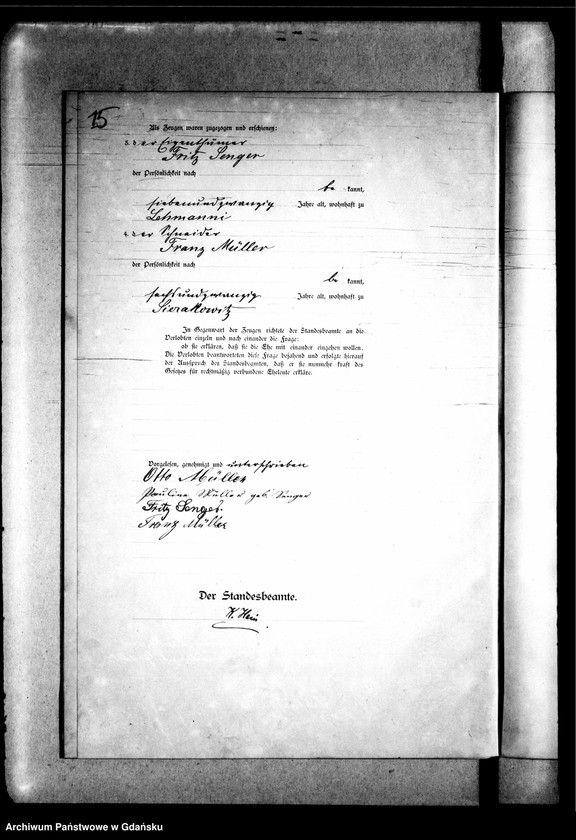 15
Als Zeugen waren zugezogen und erschienen:
3. der Eigenthümer
Fritz Senger
der Persönlichkeit nach
be kannt,
siebenundzwanzig Jahre alt, wohnhaft zu
Lehmanni
4. der Schneider
Franz Müller
der Persönlichkeit nach
be kannt,
sechsundzwanzig Jahre alt, wohnhaft zu
Sierakowitz
In Gegenwart der Zeugen richtete der Standesbeamte an die
Verlobten einzeln und nach einander die Frage:
ob sie erklären, daß sie die Ehe mit einander eingehen wollen.
Die Verlobten beantworteten diese Frage bejahend und erfolgte hierauf
der Ausspruch des Standesbeamten, daß er sie nunmehr kraft des
Gesetzes für rechtmäßig verbundene Eheleute erkläre.
Vorgelesen, genehmigt und unterschrieben
Otto Müller
Pauline Müller geb. Senger
Fritz Senger.
Franz Müller
Der Standesbeamte.
K. Hein
Archiwum Państwowe w Gdańsku